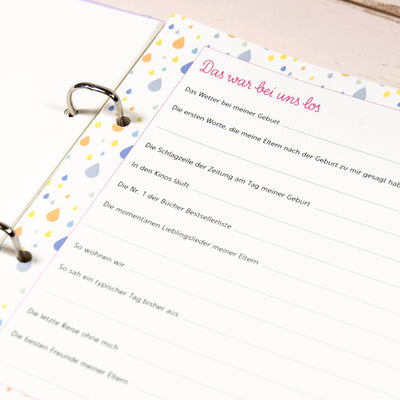 Das war bei uns los
Das Wetter bei meiner Geburt
Die ersten Worte, die meine Eltern nach der Geburt zu mir gesagt
Die Schlagzeile der Zeitung am Tag meiner Geburt
In den Kinos läuft
Die Nr. 1 der Bücher Bestsellerliste
Die momentanen Lieblingslieder meiner Eltern
So wohnen wir
So sah ein typischer Tag bisher aus
Die letzte Reise ohne mich
Die besten Freunde meiner Eltern